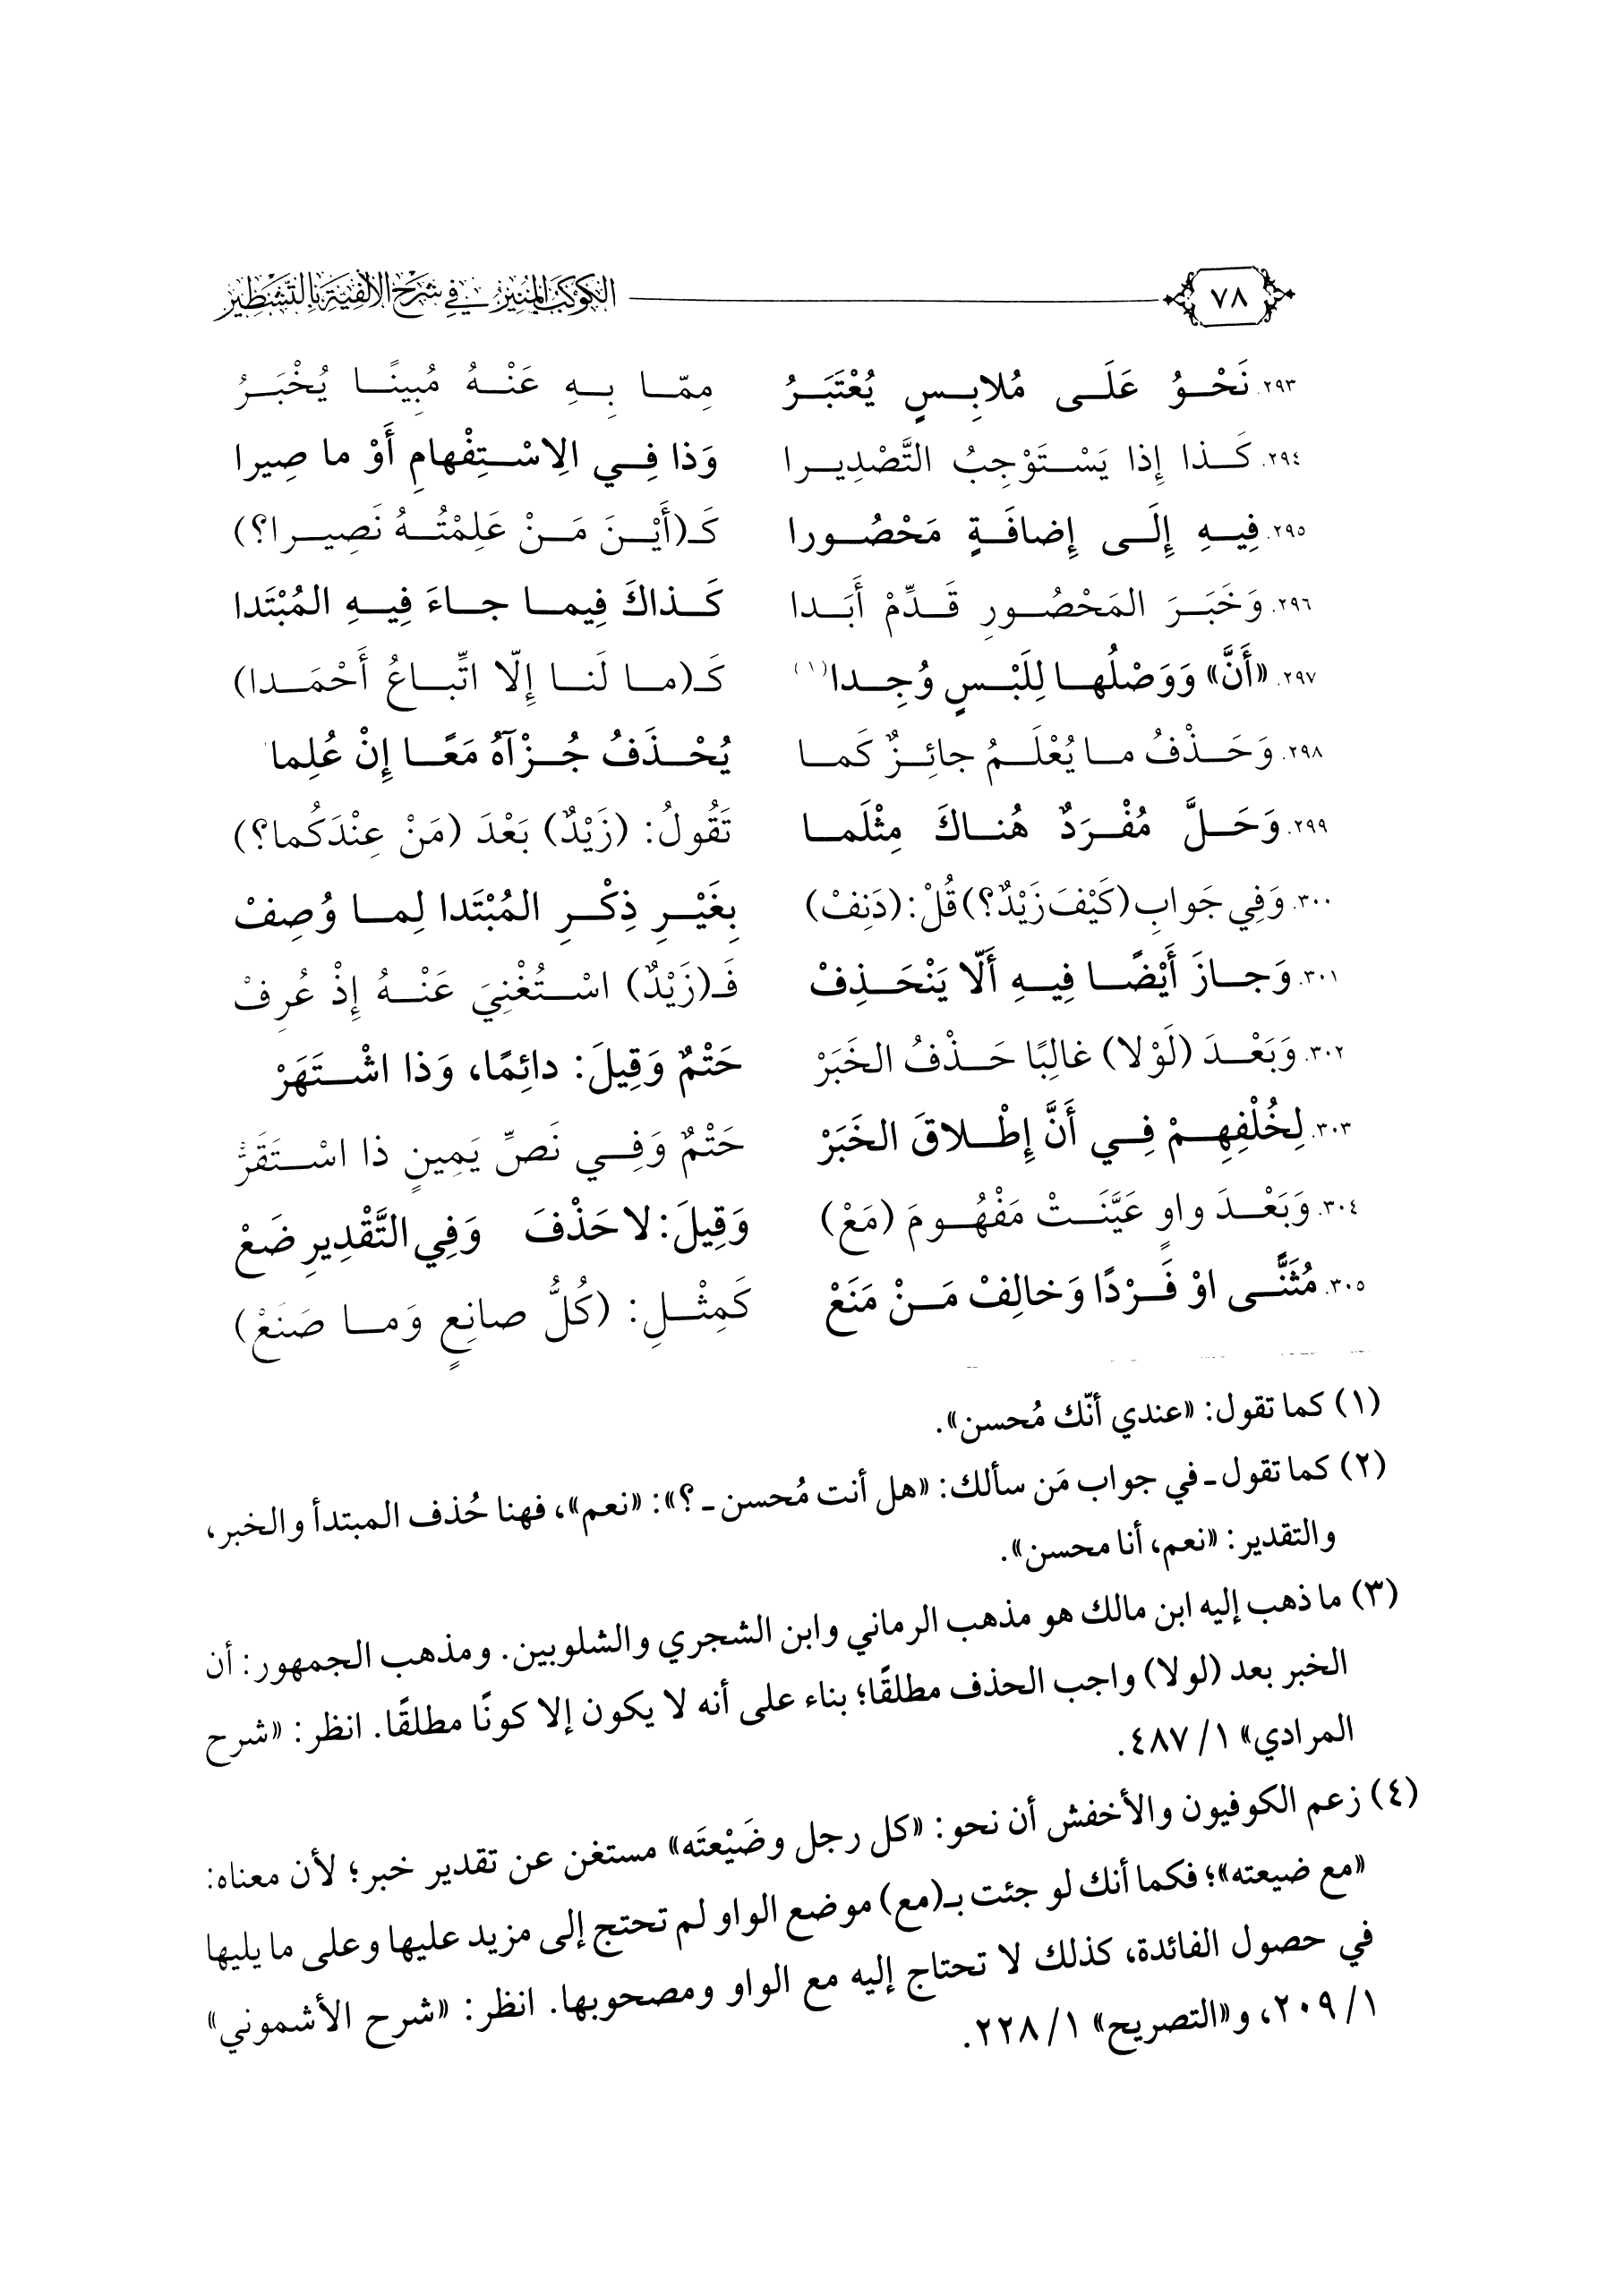 ٧٨ الكوكب المنير في شرح الألفية بالتشطير
٢٩٣. نَحْـوُ عَلَـى مُلابِـسٍ يُعْتَبَـرُ مِمّـا بِـهِ عَنْـهُ مُبِينًـا يُخْبَـرُ
٢٩٤. كَـذا إِذا يَسْـتَوْجِبُ التَّصْدِيـرا وَذا فِـي الِاسْـتِفْهامِ أَوْ ما صِيرا
٢٩٥. فِيـهِ إِلَـى إِضافَـةٍ مَحْصُـورا كَـ(أَيْـنَ مَـنْ عَلِمْتُـهُ نَصِيـرا؟)
٢٩٦. وَخَبَـرَ المَحْصُـورِ قَـدِّمْ أَبَـدا كَـذاكَ فِيمـا جـاءَ فِيـهِ المُبْتَدا
٢٩٧. «أَنَّ» وَوَصْلُهـا لِلَبْـسٍ وُجِـدا(١) كَـ(مـا لَنـا إِلّا اتِّبـاعُ أَحْمَـدا)
٢٩٨. وَحَـذْفُ مـا يُعْلَـمُ جائِـزٌ كَمـا يُحْـذَفُ جُـزْآهُ مَعًـا إِنْ عُلِما
٢٩٩. وَحَـلَّ مُفْـرَدٌ هُنـاكَ مِثْلَمـا تَقُولُ: (زَيْدٌ) بَعْدَ (مَنْ عِنْدَكُما؟)
٣٠٠. وَفِي جَوابِ (كَيْفَ زَيْدٌ؟) قُلْ: (دَنِفْ) بِغَيْـرِ ذِكْـرِ المُبْتَدا لِمـا وُصِفْ
٣٠١. وَجـازَ أَيْضًـا فِيـهِ أَلّا يَنْحَـذِفْ فَـ(زَيْدٌ) اسْـتُغْنِيَ عَنْـهُ إِذْ عُرِفْ
٣٠٢. وَبَعْـدَ (لَوْلا) غالِبًا حَـذْفُ الخَبَرْ حَتْمٌ وَقِيلَ: دائِمًا، وَذا اشْـتَهَرْ
٣٠٣. لِخُلْفِهِـمْ فِـي أَنَّ إِطْـلاقَ الخَبَرْ حَتْمٌ وَفِـي نَصِّ يَمِينٍ ذا اسْـتَقَرّْ
٣٠٤. وَبَعْـدَ واوٍ عَيَّنَـتْ مَفْهُـومَ (مَعْ) وَقِيلَ: لا حَذْفَ وَفِي التَّقْدِيرِ ضَعْ
٣٠٥. مُثَنًّـى اوْ فَـرْدًا وَخالِفْ مَـنْ مَنَعْ كَمِثْـلِ: (كُلُّ صانِعٍ وَمـا صَنَعْ)
(١) كما تقول: «عندي أنّك مُحسن».
(٢) كما تقول ـ في جواب مَن سألك: «هل أنت مُحسن ـ ؟»: «نعم»، فهنا حُذف المبتدأ والخبر،
والتقدير: «نعم، أنا محسن».
(٣) ما ذهب إليه ابن مالك هو مذهب الرماني وابن الشجري والشلوبين. ومذهب الجمهور: أن
الخبر بعد (لولا) واجب الحذف مطلقًا؛ بناء على أنه لا يكون إلا كونًا مطلقًا. انظر: «شرح
المرادي» ١/ ٤٨٧.
(٤) زعم الكوفيون والأخفش أن نحو: «كل رجل وضَيْعتَه» مستغن عن تقدير خبر؛ لأن معناه:
«مع ضيعته»؛ فكما أنك لو جئت بـ(مع) موضع الواو لم تحتج إلى مزيد عليها وعلى ما يليها
في حصول الفائدة، كذلك لا تحتاج إليه مع الواو ومصحوبها. انظر: «شرح الأشموني»
١/ ٢٠٩، و«التصريح» ١/ ٢٢٨.